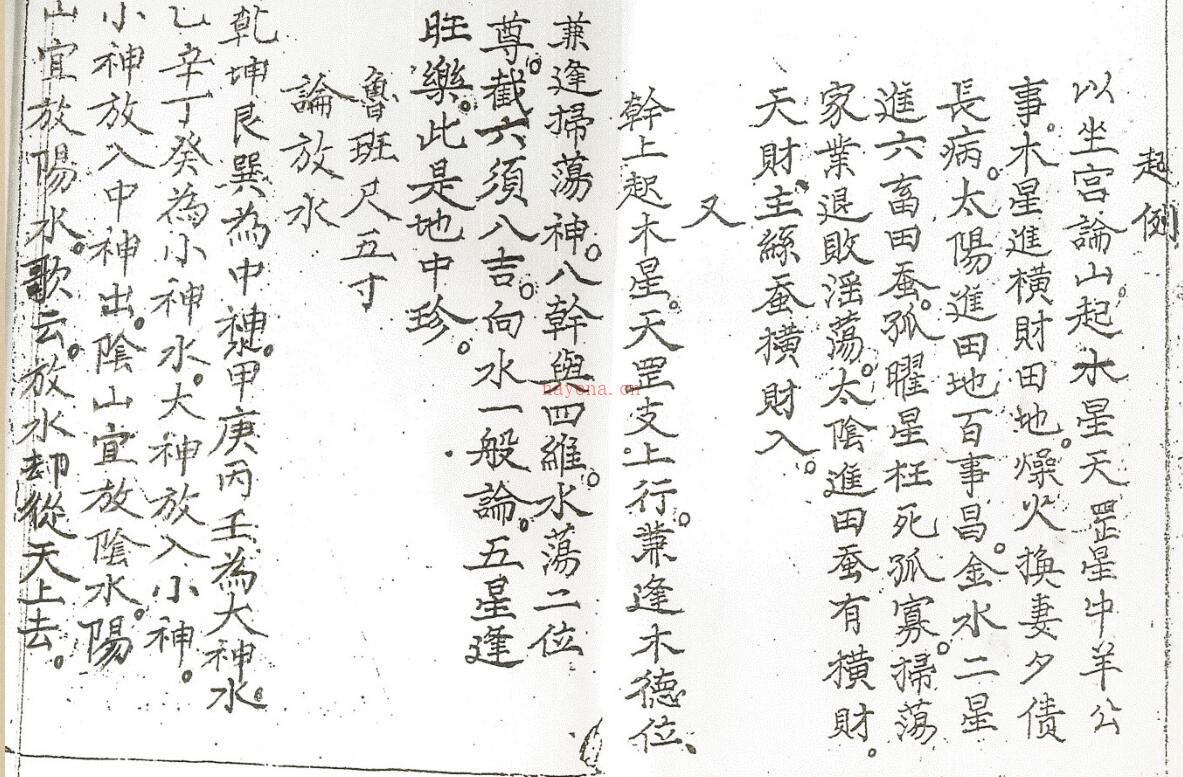 起例
以坐宫論山。起水星天罡星牛羊公
事。木星進橫財田地。燥火換妻夕債
長病。太陽進田地百事昌。金水二星
進六畜田蚕。孤曜星枉死孤寡。掃蕩
家業退敗淫蕩。太陰進田蚕有橫財。
天財主絲蚕橫財入。
又
幹上起木星。天罡支上行。兼逢木德位、
兼逢掃蕩神。八幹與四維。水蕩二位
尊。截六須八吉。向水一般論。五星逢
旺樂。此是地中珍。
魯班尺五寸
論放水
乾坤艮巽為中神。甲庚丙壬為大神水。
乙辛丁癸為小神水。大神放入小神。
小神放入中神出。陰山宜放陰水。陽
山宜放陽水。歌云。放水却從天上去。
nayona.cn